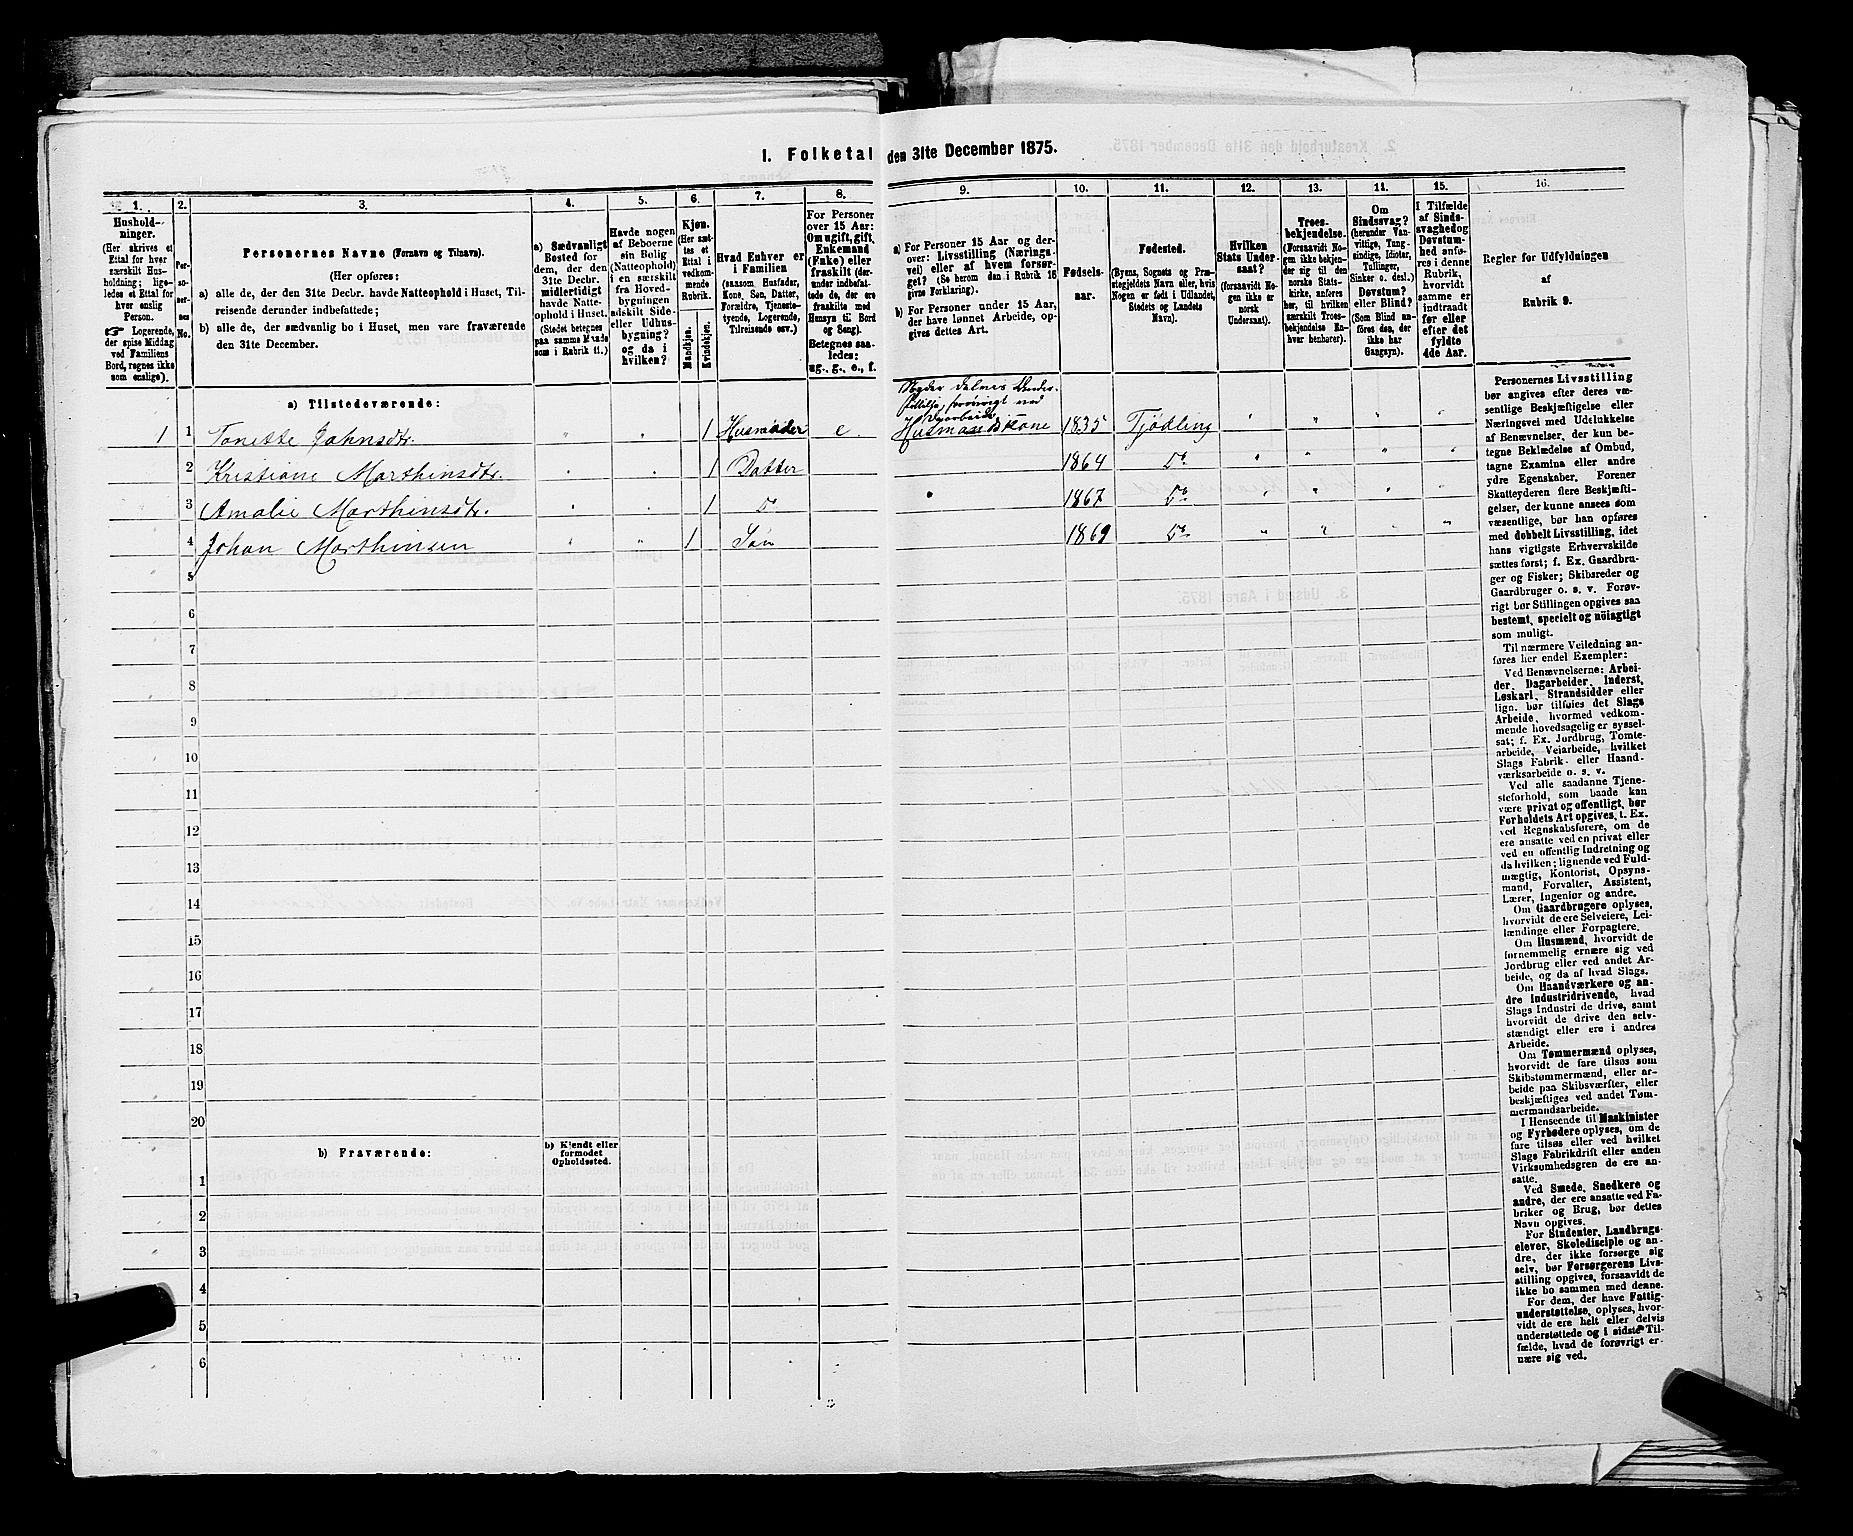 I. Folketal den 31te December 1875.
1. 2. 3. 4. 5. 6. 7. 8. 9. 10. 11. 12. 13. 14. 15. 16.
Hushold-
ninger.
(Her skrives et
Ettal for hver
særskilt Hus-
holdning; lige-
ledes et Ettal for
hver enslig
Person.
☞ Logerende,
der spise Middag
ved Familiens
Bord, regnes ikke
som enslige).
Per-
so-
ner-
nes
No.
Personernes Navne (Fornavn og Tilnavn).
(Her opføres:
a) alle de, der den 31te Decbr. havde Natteophold i Huset, Til-
reisende derunder indbefattede;
b) alle de, der sædvanlig bo i Huset, men vare fraværende
den 31te December.
a) Sædvanligt
Bosted for
dem, der den
31te Decbr.
midlertidigt
havde Natte-
ophold i Huset.
(Stedet betegnes
paa samme Maade
som i Rubrik 11.)
Havde nogen
af Beboerne
sin Bolig
(Natteophold)
i en særskilt
fra Hoved-
bygningen
adskilt Side-
eller Udhus-
bygning?
og da i
hvilken?
Kjøn.
(Her sæt-
tes et
Ettal i
vedkom-
mende
Rubrik.
Mandkjøn.
Kvindekjøn.
Hvad Enhver er
i Familien
(saasom Husfader,
Kone, Søn, Datter,
Forældre, Tjeneste-
tyende, Logerende,
Tilreisende osv.)
For Personer
over 15 Aar:
Om ugift, gift,
Enkemand
(Enke) eller
fraskilt (der-
under indbefat-
tede de, der ere
fraskilte med
Hensyn til Bord
og Seng).
Betegnes saa-
ledes:
ug., g., e., f.
a) For Personer 15 Aar og der-
over: Livsstilling (Nærings-
vei) eller af hvem forsør-
get? (Se herom den i Rubrik 16
givne Forklaring).
b) For Personer under 15 Aar,
der have lønnet Arbeide, op-
gives dettes Art.
Fødsels-
aar.
Fødested.
(Byens, Sognets og Præ-
stegjeldets Navn eller, hvis
Nogen er født i Udlandet,
Stedets og Landets
Navn).
Hvilken
Stats Under-
saat?
(forsaavidt No-
gen ikke er
norsk
Undersaat).
Troes-
bekjendelse.
(Forsaavidt No-
gen ikke bekjen-
der sig til den
norske Stats-
kirke, anføres
her, til hvilken
særskilt Troes-
bekjendelse En-
hver henhører).
Om
Sindssvag?
(herunder Van-
vittige, Tung-
sindige, Idioter,
Tullinger,
Sinker o. desl.)
Døvstum?
eller Blind?
(Som Blind an-
føres den, der
ikke har
Gangsyn).
I Tilfælde
af Sinds-
svaghed og
Døvstum-
hed anfø-
res i denne
Rubrik,
hvorvidt
samme er
indtraadt
før eller
efter det
fyldte
4de Aar.
Regler for Udfyldningen
af
Rubrik 9.
a) Tilstedeværende:
Nyder delvis Under-
1 1 Tonette Johnsdtr. " " 1 Husmoder e. Husmandskone 1835 Tjødling " " " "
2 Kristiane Marthinsdtr. " " 1 Datter 1864 Do " " " "
3 Amalie Marthinsdtr. " " 1 Do 1867 Do " " " "
4 Johan Marthinsen " " 1 Søn 1869 Do " " " "
5
6
7
8
9
10
11
12
13
14
15
16
17
18
19
20
b) Fraværende:
b) Kjendt eller
formodet
Opholdssted.
1
2
3
4
5
6
Personernes Livsstilling
bør angives efter deres væ-
sentlige Beskjæftigelse eller
Næringsvei med Udelukkelse
af Benævnelser, der kun be-
tegne Beklædelse af Ombud,
tagne Examina eller andre
ydre Egenskaber. Forener
Skatteyderen flere Beskjæfti-
gelser, der kunne ansees som
væsentlige, bør han opføres
med dobbelt Livsstilling, idet
hans vigtigste Erhvervskilde
sættes først; f. Ex. Gaardbru-
ger og Fisker; Skibsreder og
Gaardbruger o. s. v. Forøv-
rigt bør Stillingen opgives saa
bestemt, specielt og nöiagtigt
som muligt.
Til nærmere Veiledning an-
føres her endel Exempler:
Ved Benævnelserne: Arbei-
der, Dagarbeider, Inderst,
Løskarl, Strandsidder eller
lign. bør tilføies det Slags
Arbeide, hvormed vedkom-
mende hovedsagelig er syssel-
sat; f. Ex. Jordbrug, Tomte-
arbeide, Veiarbeide, hvilket
Slags Fabrik- eller Haand-
værksarbeide o. s. v.
Ved alle saadanne Tjene-
steforhold, som baade kan
være privat og offentligt, bør
Forholdets Art opgives, t. Ex.
ved Regnskabsførere, om de
ere ansatte ved en privat eller
ved en offentlig Indretning og
da hvilken; lignende ved Fuld-
mægtig, Kontorist, Opsyns-
mand, Forvalter, Assistent,
Lærer, Ingeniør og andre.
Om Gaardbrugere oplyses,
hvorvidt de ere Selveiere, Lei-
lændinge eller Forpagtere.
Om Husmænd, hvorvidt de
fornemmelig ernære sig ved
Jordbrug eller ved andet Ar-
beide, og da af hvad Slags.
Om Haandværkere og an-
dre Industridrivende, hvad
Slags Industri de drive, samt
hvorvidt de drive den selv-
stændigt eller ere i andres
Arbeide.
Om Tømmermænd oplyses,
hvorvidt de fare tilsøs som
Skibstømmermænd, eller ar-
beide paa Skibsværfter, eller
beskjæftiges ved andet Tøm-
mermandsarbeide.
I Henseende til Maskinister
og Fyrbødere oplyses, om de
fare tilsøs eller ved hvilket
Slags Fabrikdrift eller anden
Virksomhedsgren de ere an-
satte.
Ved Smede, Snedkere og
andre, der ere ansatte ved Fa-
briker og Brug, bør dettes
Navn opgives.
For Studenter, Landbrugs-
elever, Skoledisciple og an-
dre, der ikke forsørge sig
selv, bør Forsørgerens Livs-
stilling opgives, forsaavidt de
ikke bo sammen med denne.
For dem, der have Fattig-
understøttelse, oplyses, hvor-
vidt de ere helt eller delvis
understøttede og i sidste Til-
fælde, hvad de forøvrigt er-
nære sig ved.